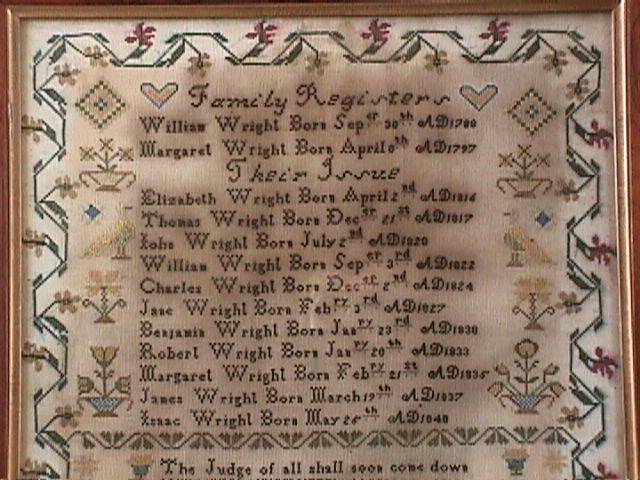 Family Registers
William Wright Born Seper 30th AD1788
Margaret Wright Born April 8th AD1797
Their Issue
Elizabeth Wright Born April 2nd AD1816
Thomas Wright Born Decer 21st AD1817
John Wright Born July 2nd AD1820
William Wright Born Seper 3rd AD1822
Charles Wright Born Decer 2nd AD1824
Jane Wright Born Febry 3rd AD1827
Benjamin Wright Born Janry 23rd AD1830
Robert Wright Born Janry 20th AD1833
Margaret Wright Born Febry 21st AD1835
James Wright Born March 19th AD1837
Isaac Wright Born May 26th AD1840
The Judge of all shall soon come down